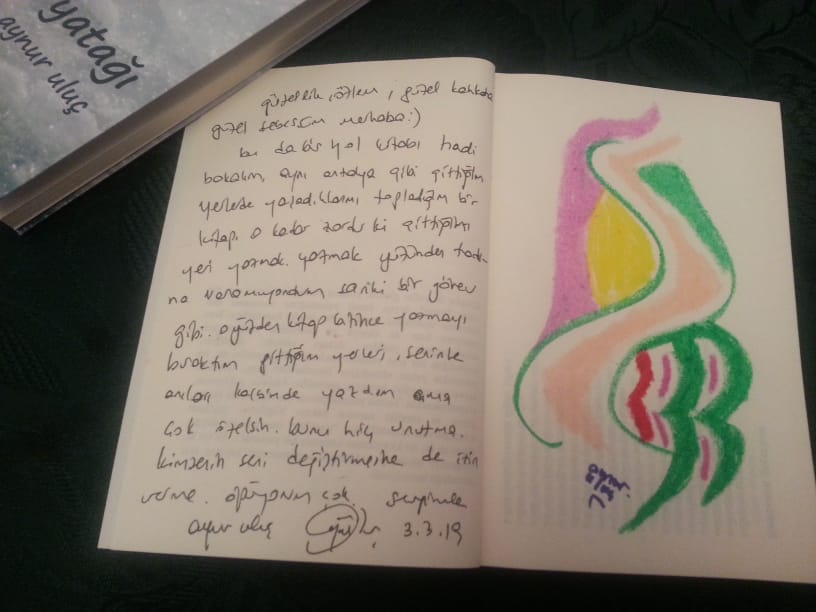 yatağı
aynur uluç
güzellik, özlem, güzel kahkaha
güzel sebessüm merhaba:)
bu da bir yol kitabı hadi
bakalım, aynı antalya gibi gittiğim
yerlede yaşadıklarımı topladığım bir
kitap. o kadar zordu ki gittiğim
yeri yazmak. yazmak yüzünden tadı-
na varamıyordum sanki bir görev
gibi. o yüzden kitap bitince yazmayı
bıraktım gittiğim yerleri, seninle
anıları yazdım ama
çok özelsin. bunu hiç unutma.
kimsenin seni değiştirmesine de izin
verme. öpüyorum çok. sevgimle
aynur uluç 3.3.19